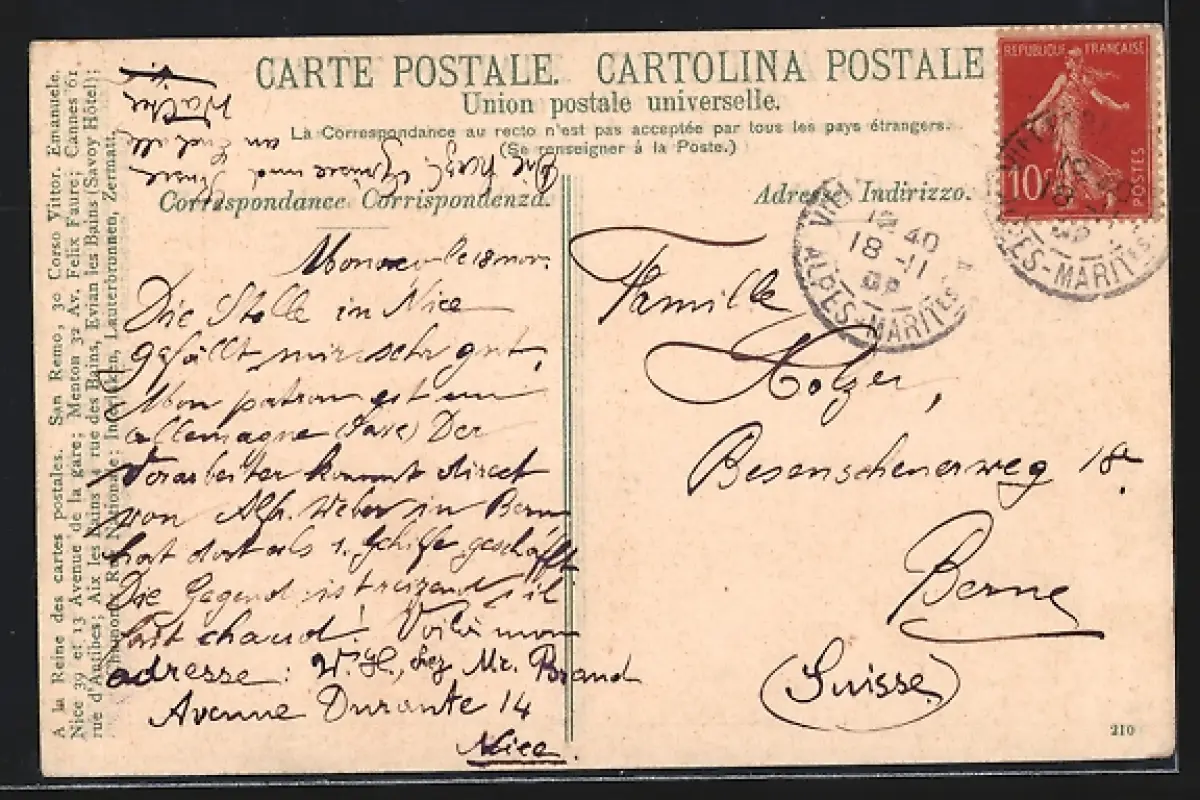 CARTE POSTALE. CARTOLINA POSTALE
Union postale universelle.
La Correspondance au recto n'est pas acceptée par tous les pays étrangers.
(Se renseigner à la Poste.)
Correspondance Corrispondenza.
Monaco le 18 nov.
Die Stelle in Nice
gefällt mir sehr gut,
Mon patron est un
allemagne Der
Vorarbeiter kommt direct
von Alf. Weber in Bern
hat dort als 1. geschafft
Die Gegend ist reizend & il
fait chaud! Voilà mon
adresse: W. H., chez Mr. Brand
Avenue Durante 14
Nice.
Beste Grüsse und Küsse
an Euch alle
Walther
Adresse Indirizzo.
Famille
Holzer,
Besenscheuerweg 18a
Berne
(Suisse)
REPUBLIQUE FRANÇAISE
10c
POSTES
12 40
18 -11
09
ALPES-MARITES
12 40
18
ALPES-MARITES
A la Reine des cartes postales. San Remo, 30 Corso Vittor. Emanuele.
Nice 39 et 13 Avenue de la gare; Menton 32 Av. Felix Faure; Cannes 61
rue d'Antibes; Aix les Bains 4 rue des Bains, Evian les Bains (Savoy Hôtel);
Chamonix Rue Nationale; Interlaken, Lauterbrunnen, Zermatt.
210